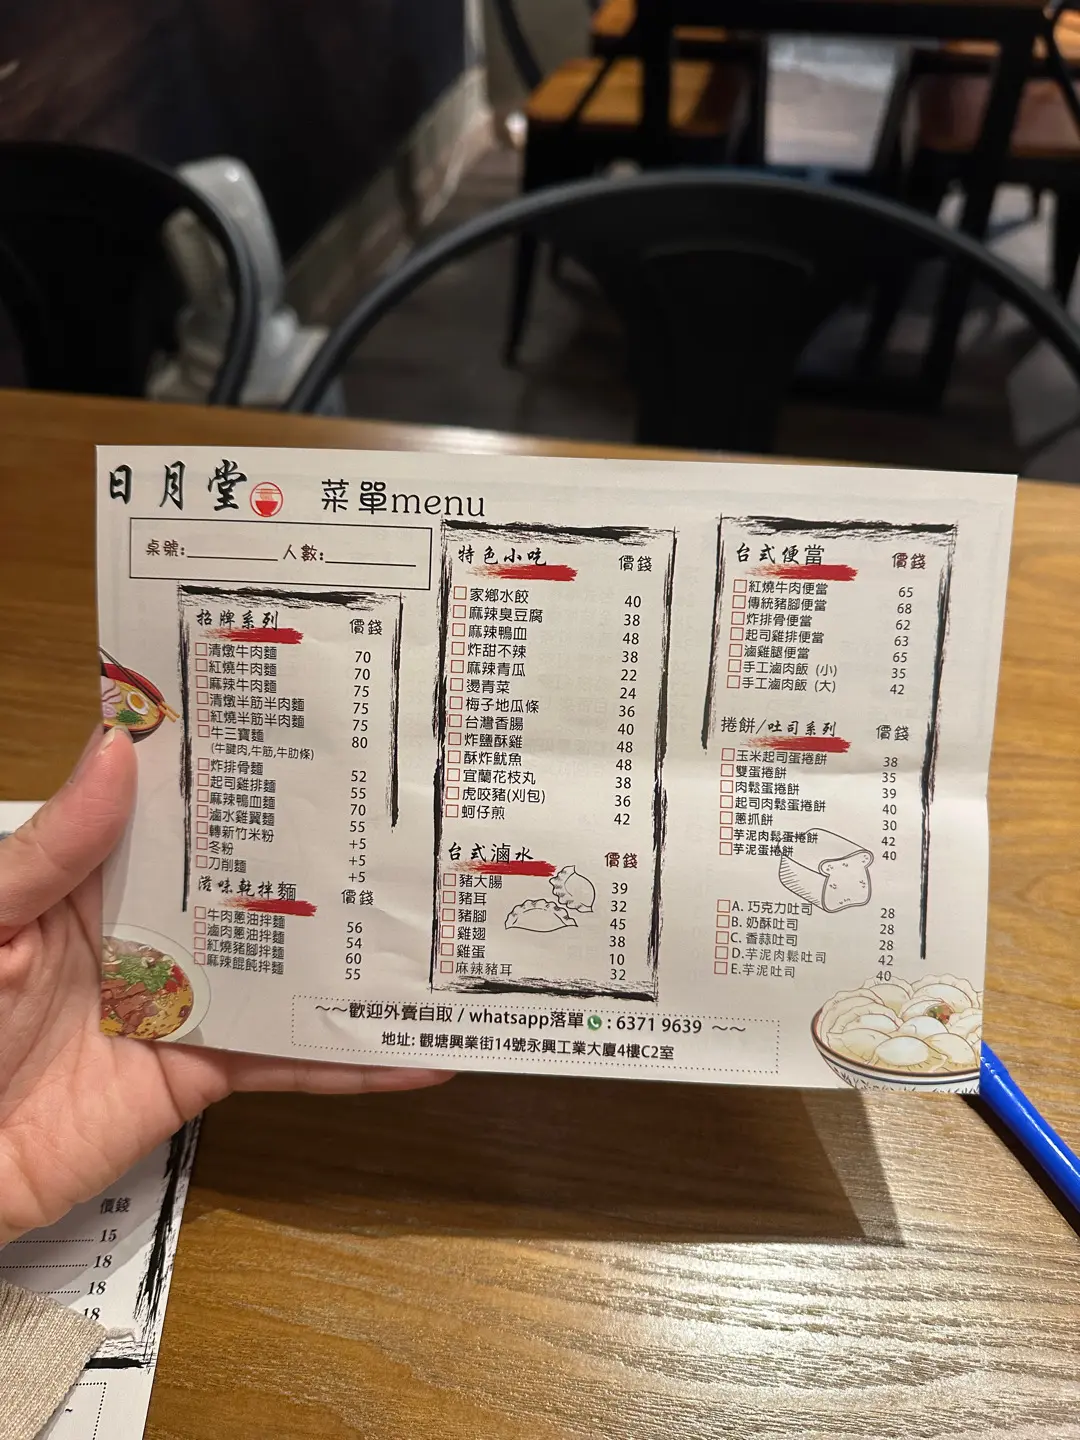 日月堂 菜單menu
桌號:________人數:________
招牌系列 價錢
清燉牛肉麵 70
紅燒牛肉麵 70
麻辣牛肉麵 75
清燉半筋半肉麵 75
紅燒半筋半肉麵 75
牛三寶麵 80
(牛腱肉,牛筋,牛肋條)
炸排骨麵 52
起司雞排麵 55
麻辣鴨血麵 70
滷水雞翼麵 55
轉新竹米粉 +5
冬粉 +5
刀削麵 +5
滋味乾拌麵 價錢
牛肉蔥油拌麵 56
滷肉蔥油拌麵 54
紅燒豬腳拌麵 60
麻辣餛飩拌麵 55
特色小吃 價錢
家鄉水餃 40
麻辣臭豆腐 38
麻辣鴨血 48
炸甜不辣 38
麻辣青瓜 22
燙青菜 24
梅子地瓜條 36
台灣香腸 40
炸鹽酥雞 48
酥炸魷魚 48
宜蘭花枝丸 38
虎咬豬(刈包) 36
蚵仔煎 42
台式滷水 價錢
豬大腸 39
豬耳 32
豬腳 45
雞翅 38
雞蛋 10
麻辣豬耳 32
台式便當 價錢
紅燒牛肉便當 65
傳統豬腳便當 68
炸排骨便當 62
起司雞排便當 63
滷雞腿便當 65
手工滷肉飯 (小) 35
手工滷肉飯 (大) 42
捲餅/吐司系列 價錢
玉米起司蛋捲餅 38
雙蛋捲餅 35
肉鬆蛋捲餅 39
起司肉鬆蛋捲餅 40
蔥抓餅 30
芋泥肉鬆蛋捲餅 42
芋泥蛋捲餅 40
A. 巧克力吐司 28
B. 奶酥吐司 28
C. 香蒜吐司 28
D.芋泥肉鬆吐司 42
E.芋泥吐司 40
～～歡迎外賣自取 / whatsapp落單 : 6371 9639 ～～
地址: 觀塘興業街14號永興工業大廈4樓C2室
價錢
15
18
18
18